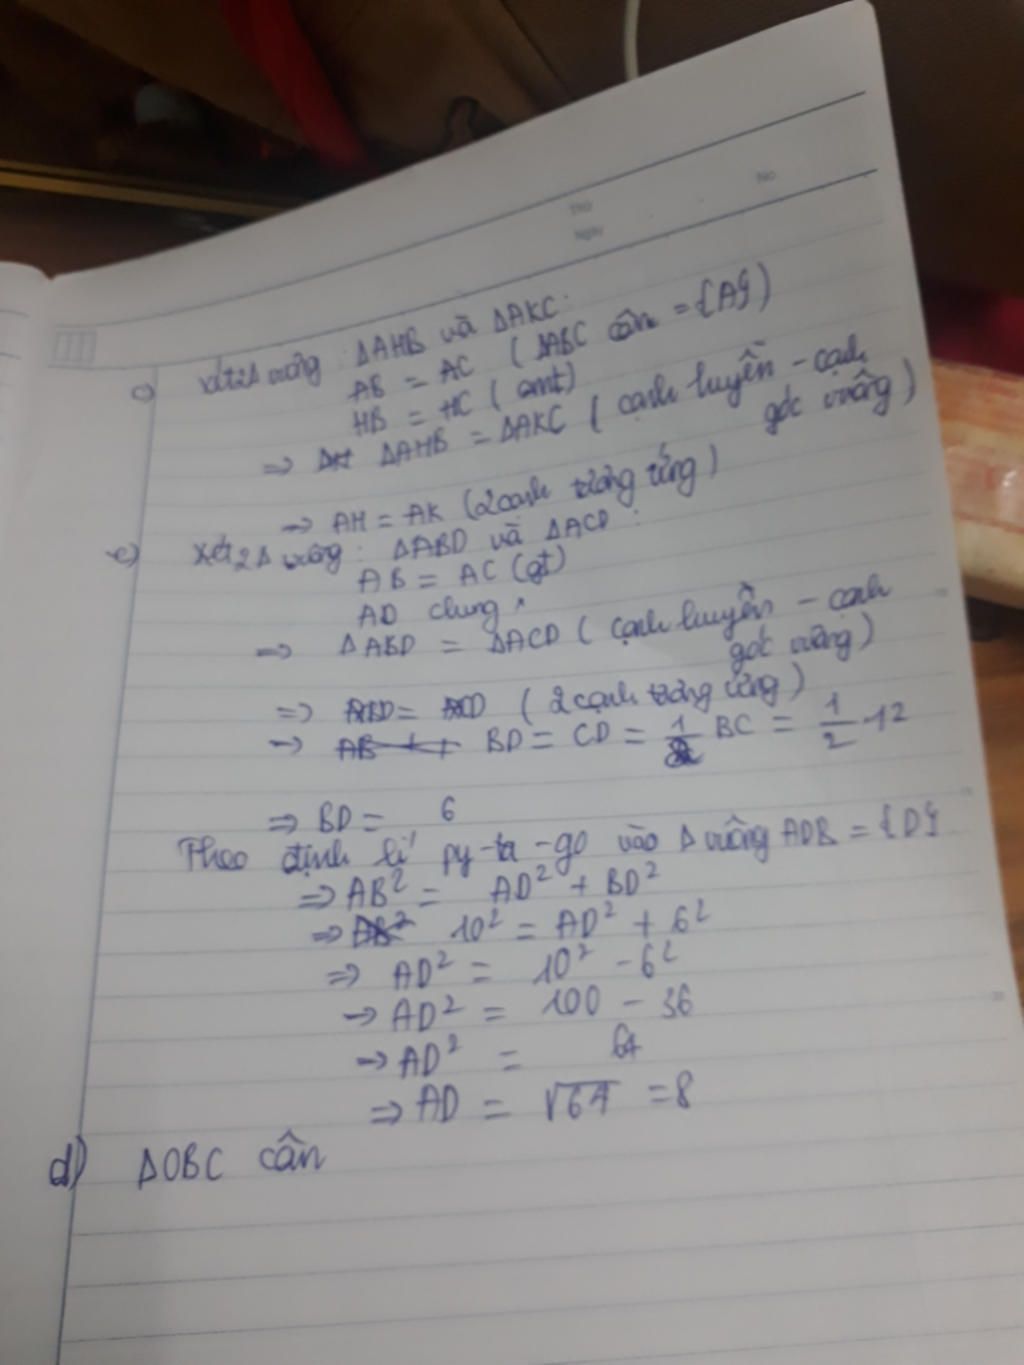 Thứ
No
Ngày
c) xét 2Δ vuông : ΔAHB và ΔAKC :
AB = AC ( ΔABC cân = {A})
HB = HC ( cmt)
=> ΔAHB = ΔAKC ( cạnh huyền - cạnh
góc vuông )
-> AH = AK (2 cạnh tương ứng )
c) xét 2Δ vuông : ΔABD và ΔACD :
AB = AC (gt)
AD chung
=> ΔABD = ΔACD ( cạnh huyền - cạnh
góc vuông )
=> BD = CD ( 2 cạnh tương ứng )
-> BD = CD = 1/2 BC = 1/2 . 12
=> BD = 6
Theo định lí py-ta-go vào Δ vuông ADB = {D}
=> AB² = AD² + BD²
=> 10² = AD² + 6²
=> AD² = 10² - 6²
-> AD² = 100 - 36
-> AD² = 64
=> AD = √64 = 8
d) ΔOBC cân